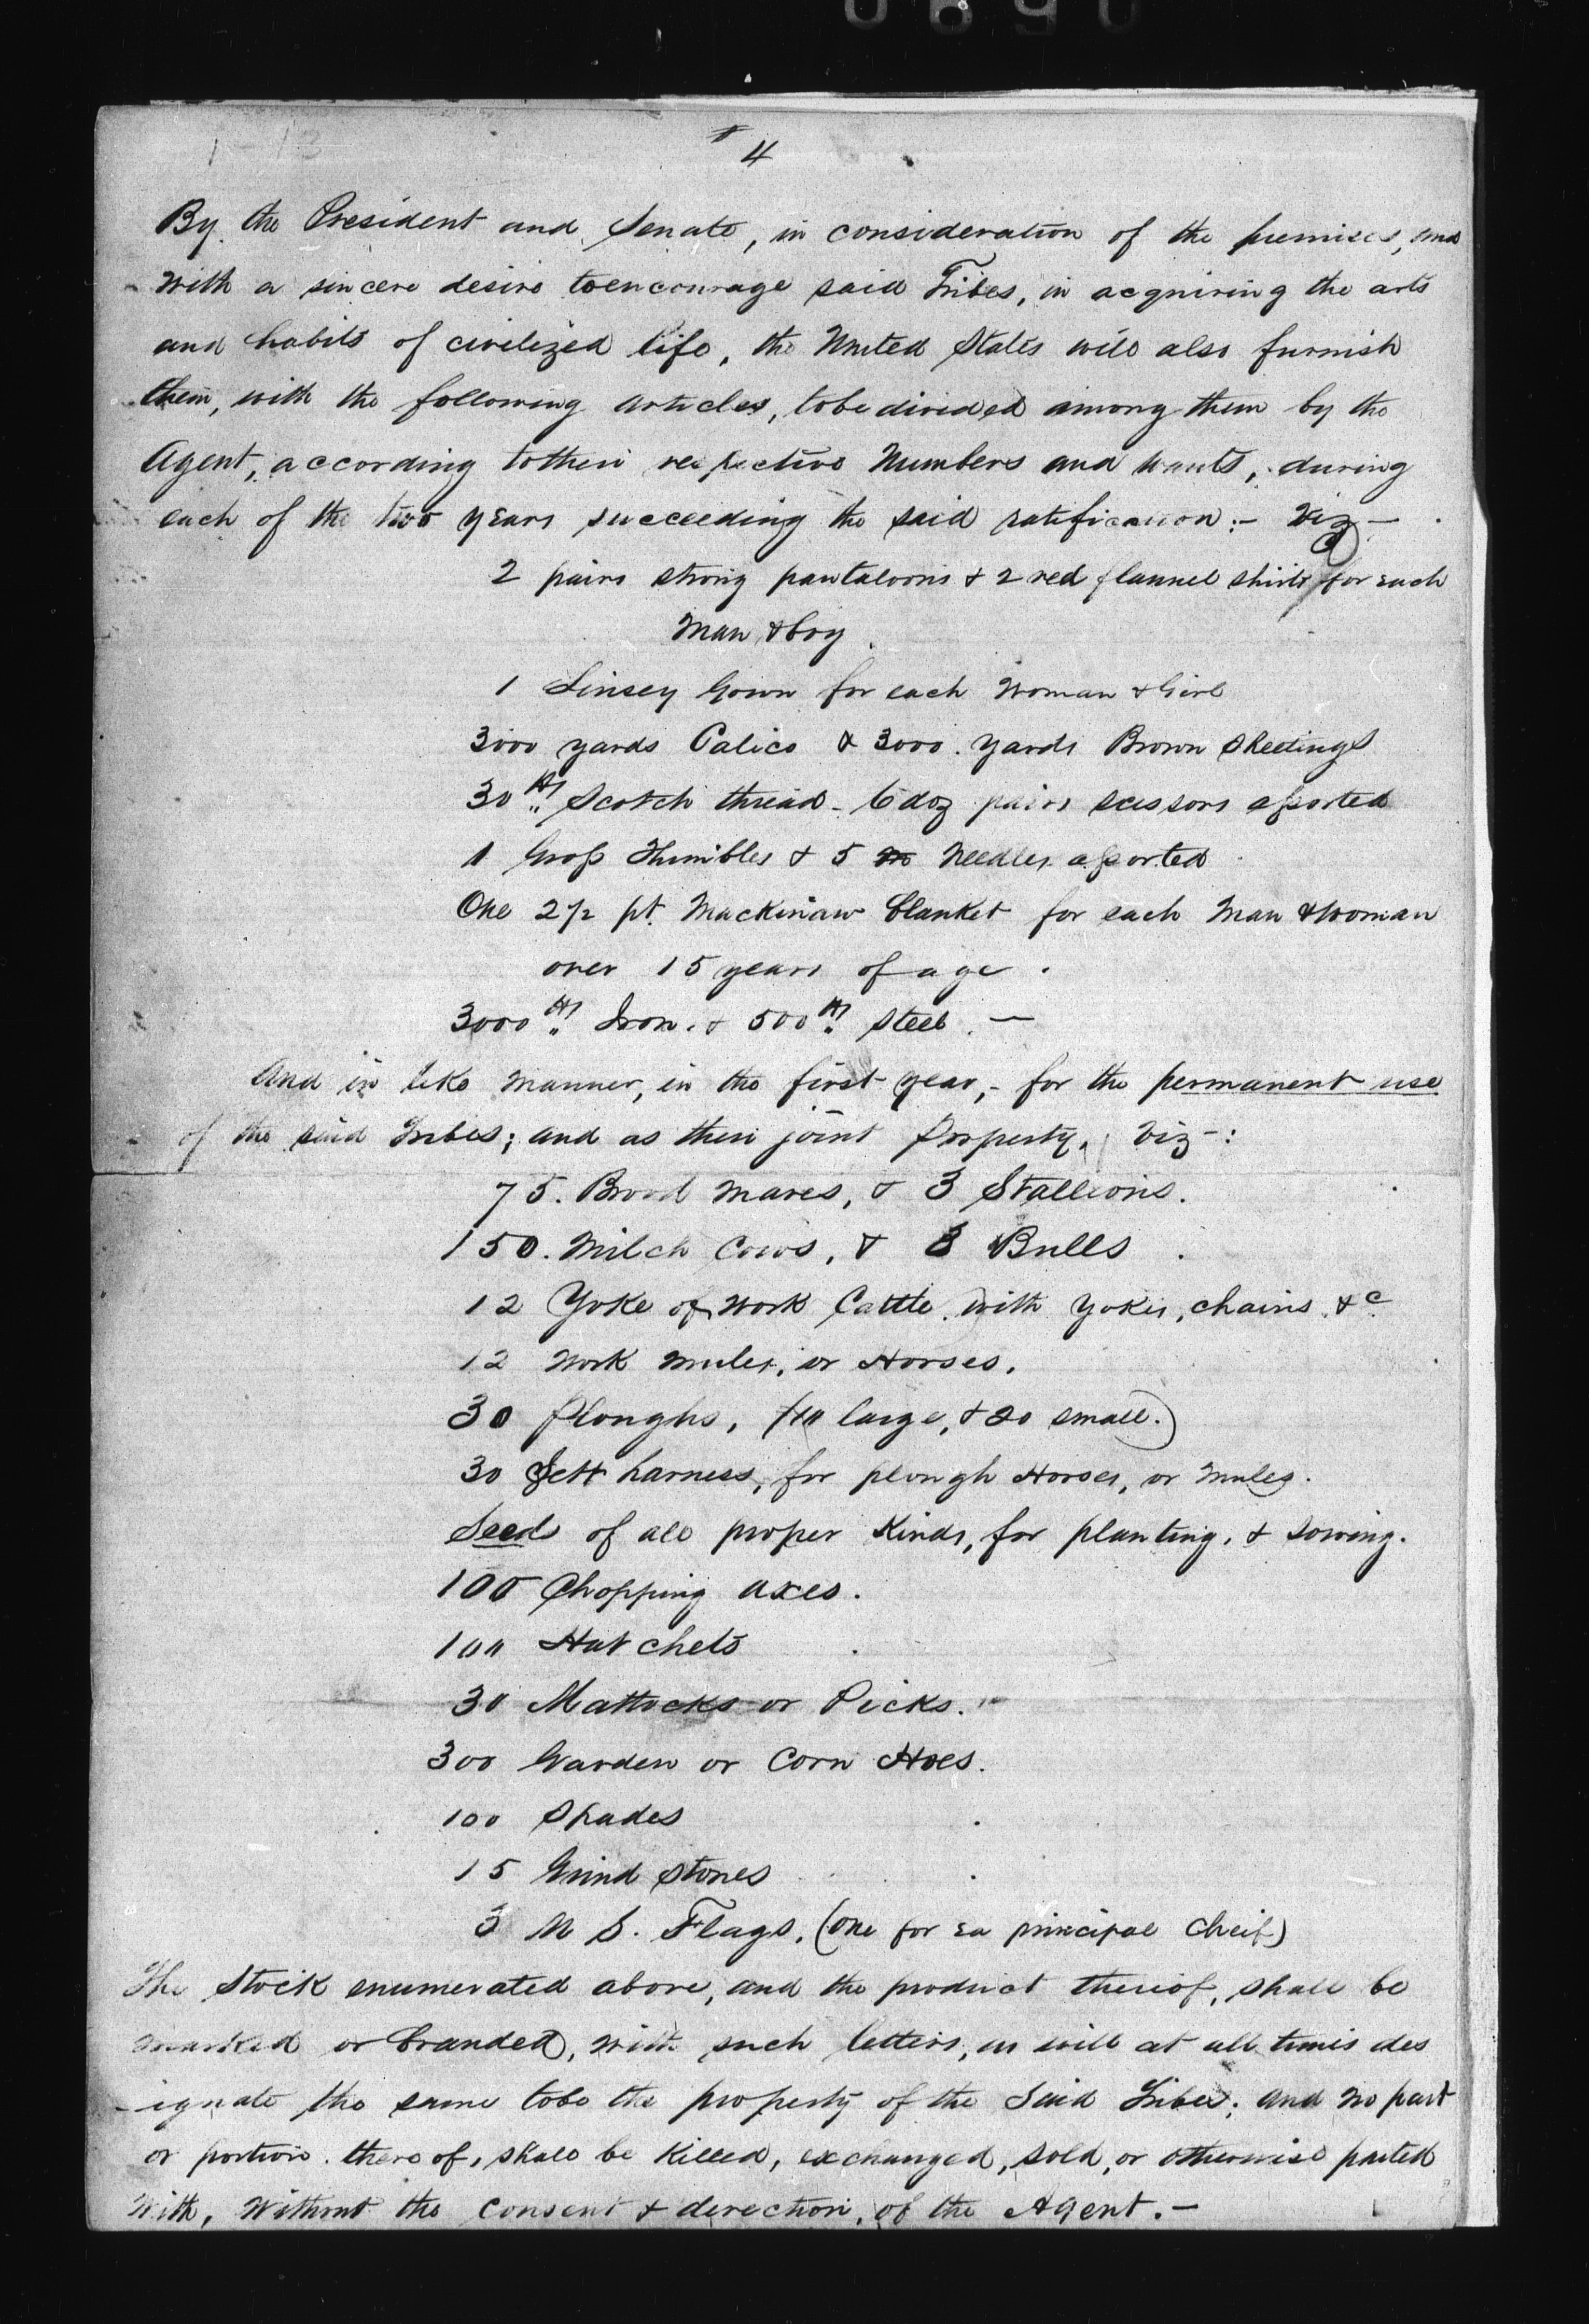 0690
1-13
4
By the President and Senate, in consideration of the premises, and
with a sincere desire to encourage said Tribes, in acquiring the arts
and habits of civilized life, the United States will also furnish
them, with the following articles, to be divided among them by the
Agent, according to their respective Numbers and wants, during
each of the two years succeeding the said ratification:- Viz-
2 pairs strong pantaloons & 2 red flannel shirts for each
Man & boy
1 Linsey Gown for each Woman & Girl
3000 yards Calico & 3000. yards Brown Sheetings
30 lbs Scotch thread - 6 doz pairs scissors assorted
1 Gross Thimbles & 5 m Needles assorted
One 2 1/2 pt. Mackinaw blanket for each Man & Woman
over 15 years of age.
3000 lbs Iron. & 500 lbs Steel. -
And in like manner, in the first year,- for the permanent use
of the said Tribes; and as their joint Property. Viz-:
75. Brood Mares, & 3 Stallions.
150. Milch Cows, & 8 Bulls.
12 Yoke of Work Cattle. with Yokes, chains. &c
12 Work mules, or Horses.
30 Ploughs, (10 large, & 20 small.)
30 Sett harness, for plough Horses, or Mules.
Seeds of all proper Kinds, for planting, & sowing.
100 Chopping axes.
100 Hatchets
30 Mattocks or Picks.
300 Garden or Corn Hoes.
100 Spades
15 Grind Stones
3 U S. Flags, (One for ea principal Cheif)
The Stock enumerated above, and the product thereof, shall be
marked or branded, with such letters, as will at all times des
-ignate the same to be the property of the Said Tribes; and no part
or portion thereof, shall be Killed, exchanged, sold, or otherwise parted
with, Without the Consent & derection, of the Agent.-